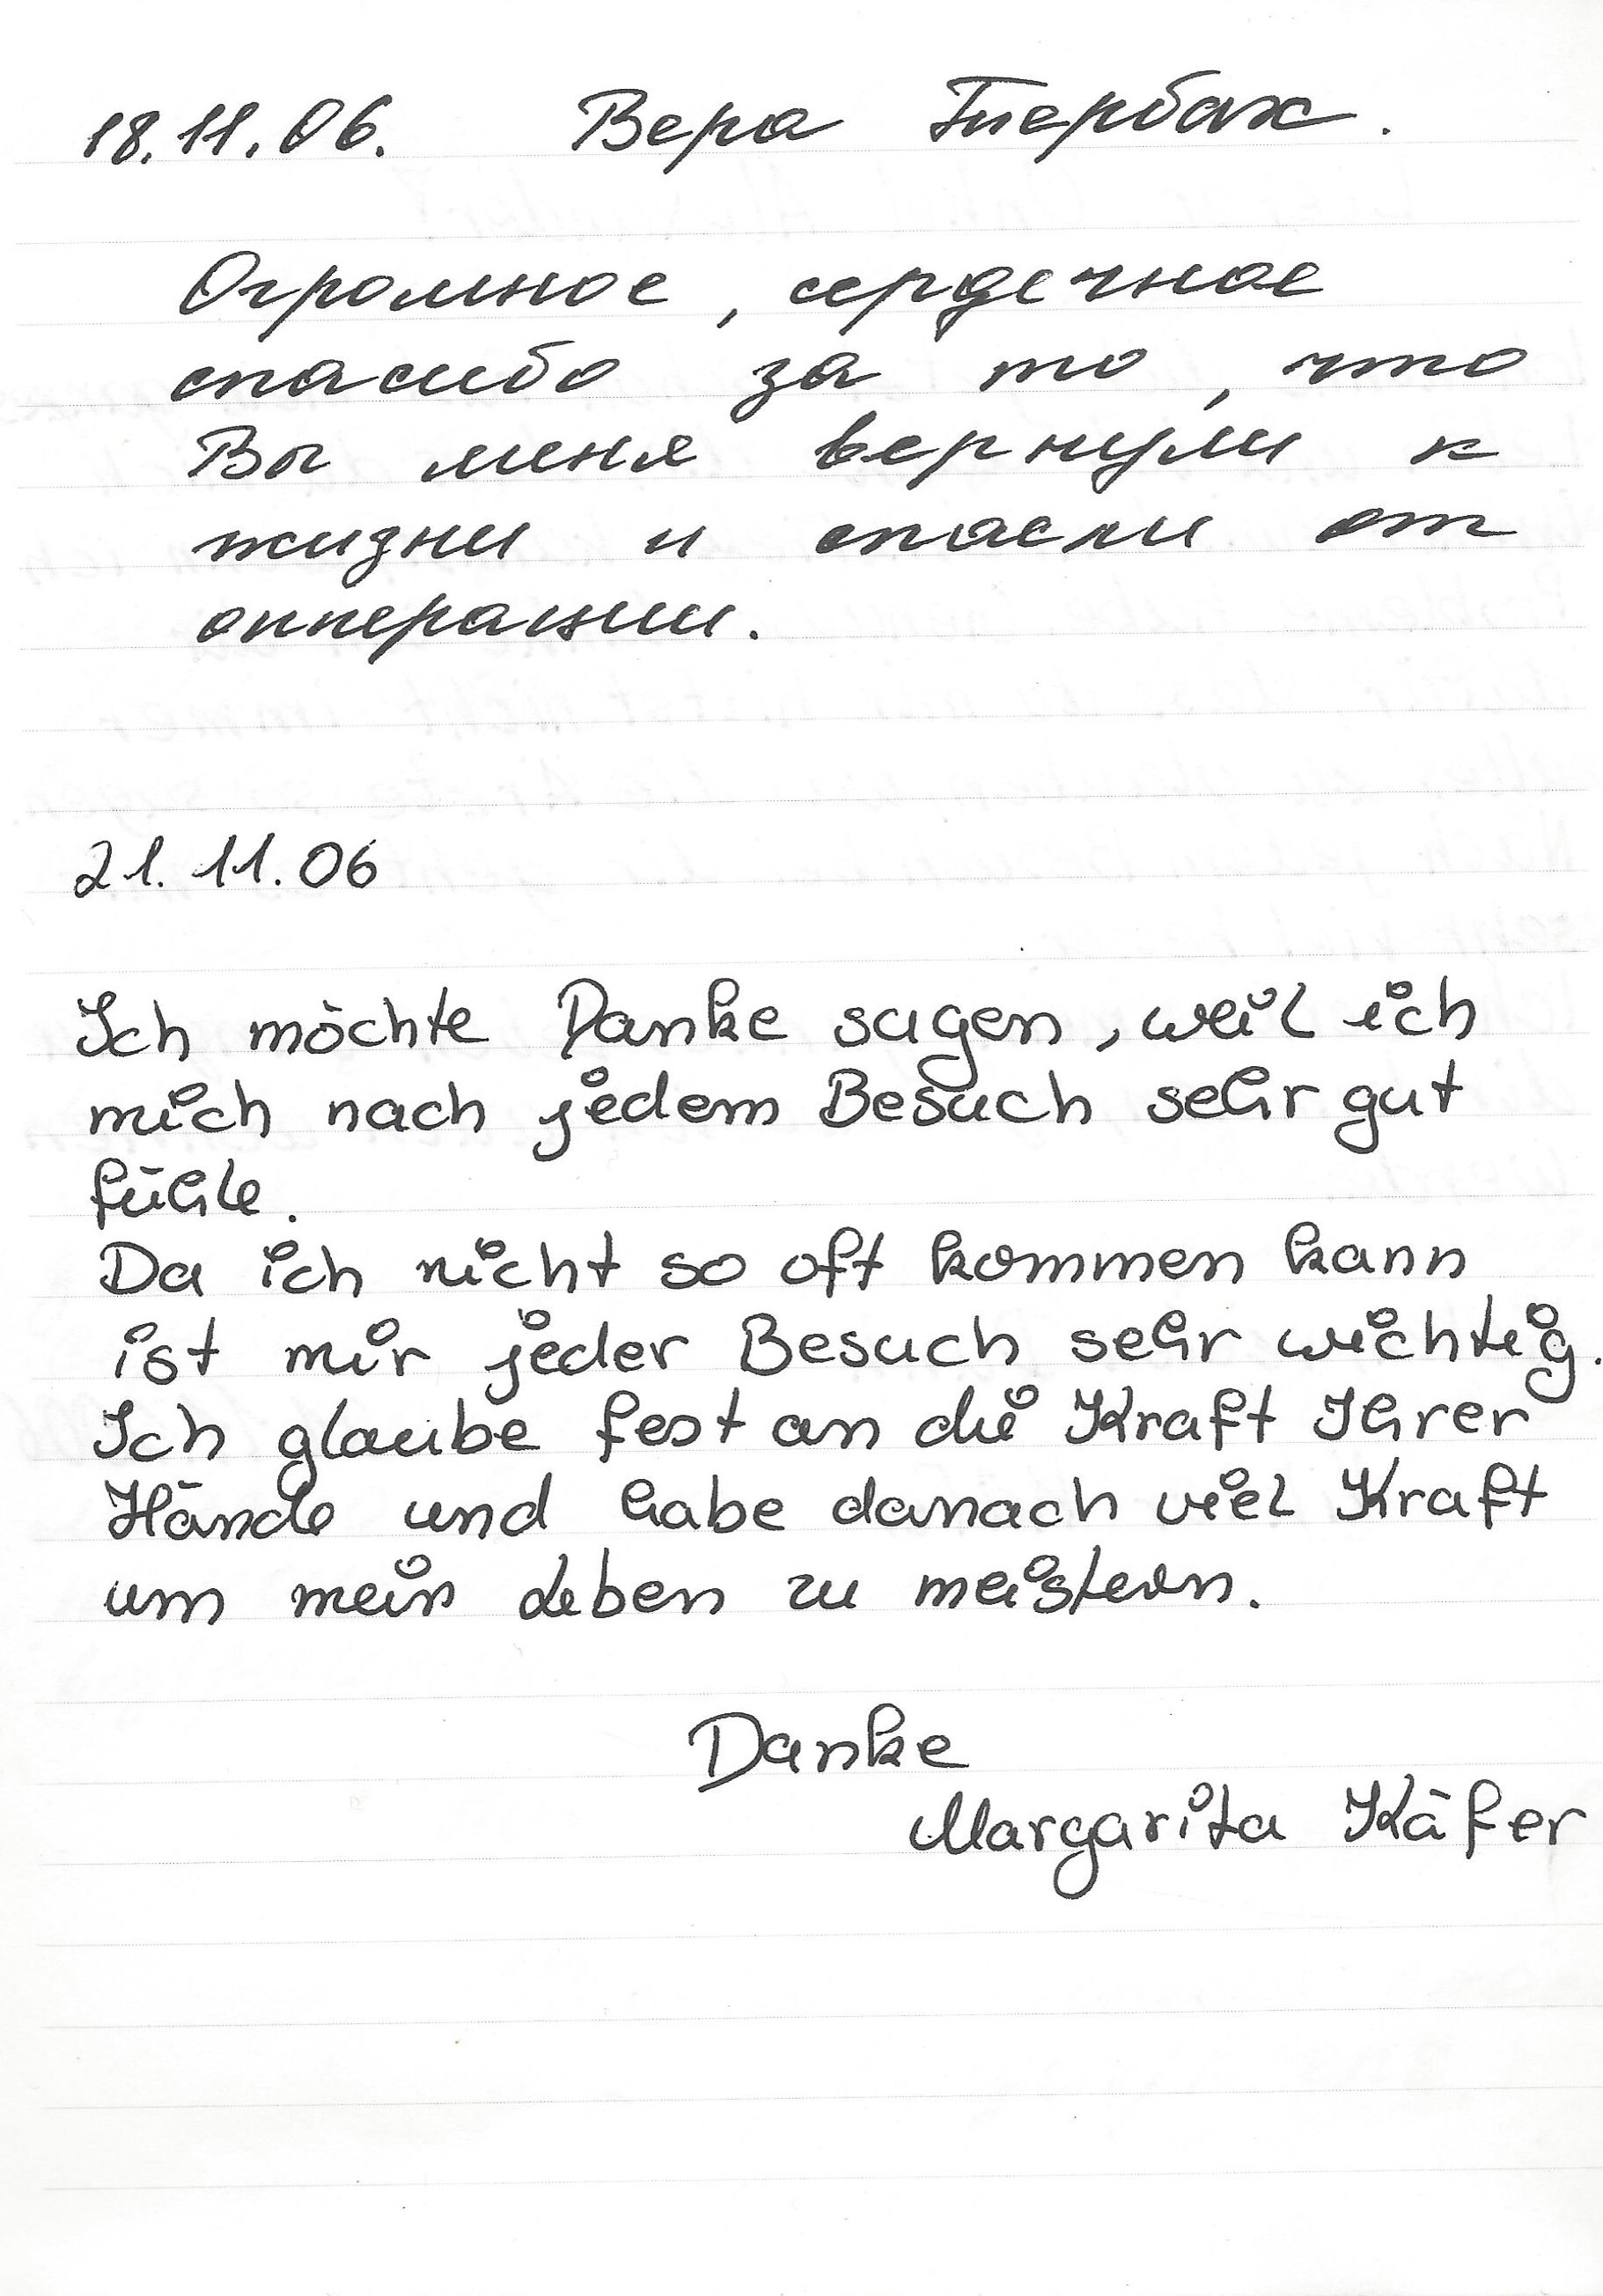 18.11.06. Вера Гиербах.
Огромное, сердечное
спасибо за то, что
Вы меня вернули к
жизни и спасли от
опперации.
21.11.06
Ich möchte Danke sagen, weil ich
mich nach jedem Besuch sehr gut
fühle.
Da ich nicht so oft kommen kann
ist mir jeder Besuch sehr wichtig.
Ich glaube fest an die Kraft Ihrer
Hände und habe danach viel Kraft
um mein Leben zu meistern.
Danke
Margarita Käfer